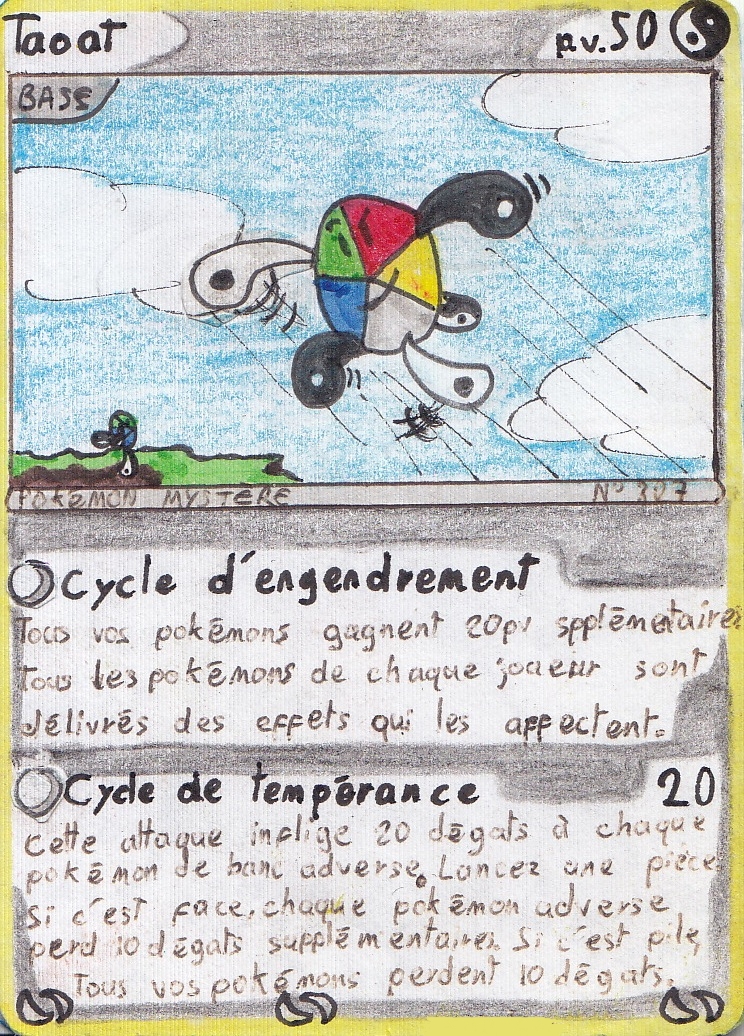 Taoat
pv. 50
BASE
POKéMON MYSTERE
N° 387
Cycle d'engendrement
Tous vos pokémons gagnent 20pv spplémentaires
tous les pokémons de chaque joueur sont
délivrés des effets qui les affectent.
Cycle de tempérance
20
Cette attaque inflige 20 dégats à chaque
pokémon de banc adverse. Lancez une pièce
Si c'est face, chaque pokémon adverse
perd 10 dégats supplémentaires. Si c'est pile,
Tous vos pokémons perdent 10 dégats.